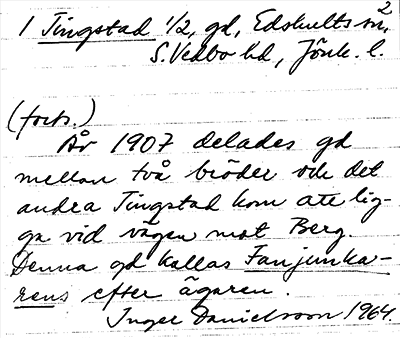 1 Tingstad 1/2, gd, Edshults sn, 2
S. Vedbo hd, Jönk. l.
(forts.)
År 1907 delades gd
mellan två bröder och det
andra Tingstad kom att lig-
ga vid vägen mot Berg.
Denna gd kallas Fanjunka-
rens efter ägaren.
Inger Danielsson 1964.